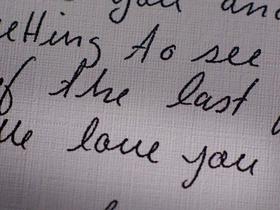 you and
etting to see
of the last
we love you